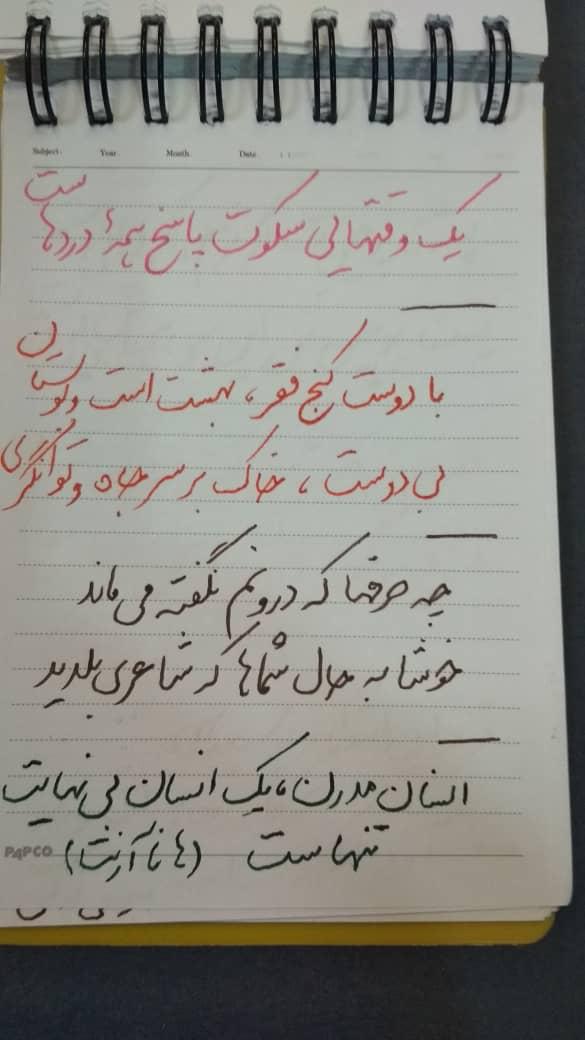 Subject. Year. Month. Date. ( )
یک وقتهایی سکوت پاسخ همهٔ دردهاست
با دوست کنج فقر، بهشت است و بوستان
بی دوست، خاک بر سر جاه و توانگری
چه حرفها که درونم نگفته می‌ماند
خوشا به حال شماها که شاعری بلدید
انسان مدرن، یک انسان بی نهایت
تنهاست (هانا آرنت)
PAPCO